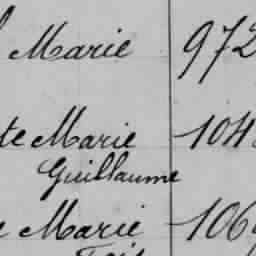 Marie 972
te Marie 104
Guillaume
e Marie 106